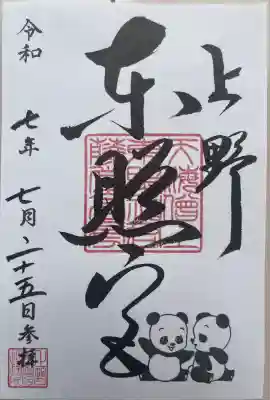 上野
東照宮
令和七年七月二十五日参拝